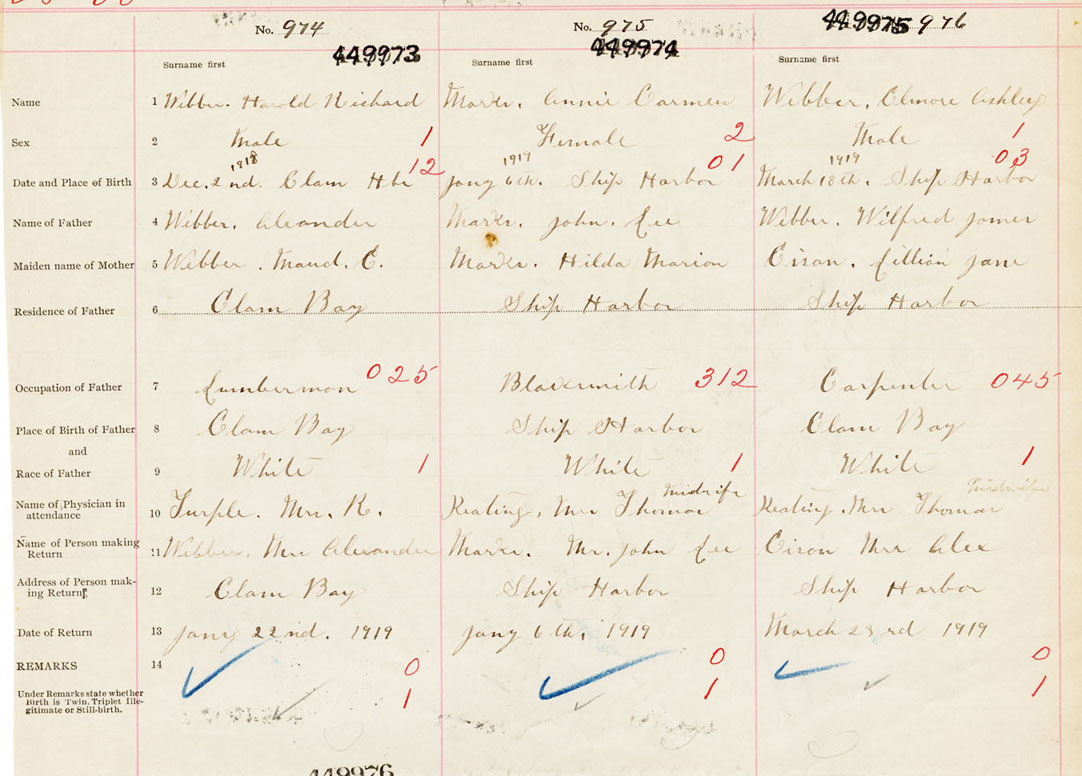 No. 974 No. 975 449975 976
449973 449974
Surname first Surname first Surname first
Name 1 Webber. Harold Richard Marks, Annie Carmen Webber, Elmore Ashley
Sex 2 Male 1 Female 2 Male 1
1918 12 1919 01 1919 03
Date and Place of Birth 3 Dec. 2nd. Clam Hbr Jany 6th. Ship Harbor March 18th. Ship Harbor
Name of Father 4 Webber, Alexander Marks, John. Lee Webber, Wilfred James
Maiden name of Mother 5 Webber. Maud. E. Marks. Hilda Marion Eison. Lillian Jane
Residence of Father 6 Clam Bay Ship Harbor Ship Harbor
Occupation of Father 7 Lumberman 025 Blacksmith 312 Carpenter 045
Place of Birth of Father 8 Clam Bay Ship Harbor Clam Bay
and
Race of Father 9 White 1 White 1 White 1
Midwife Midwife
Name of Physician in
attendance 10 Turple. Mrs. R. Keating, Mrs Thomas Keating, Mrs Thomas
Name of Person making
Return 11 Webber, Mrs Alexander Marks. Mr. John Lee Eison Mrs Alex
Address of Person mak-
ing Return 12 Clam Bay Ship Harbor Ship Harbor
Date of Return 13 Jany 22nd. 1919 Jany 6th, 1919 March 23rd 1919
REMARKS 14 0 0 0
Under Remarks state whether 1 1 1
Birth is Twin, Triplet Ille-
gitimate or Still-birth.
449976